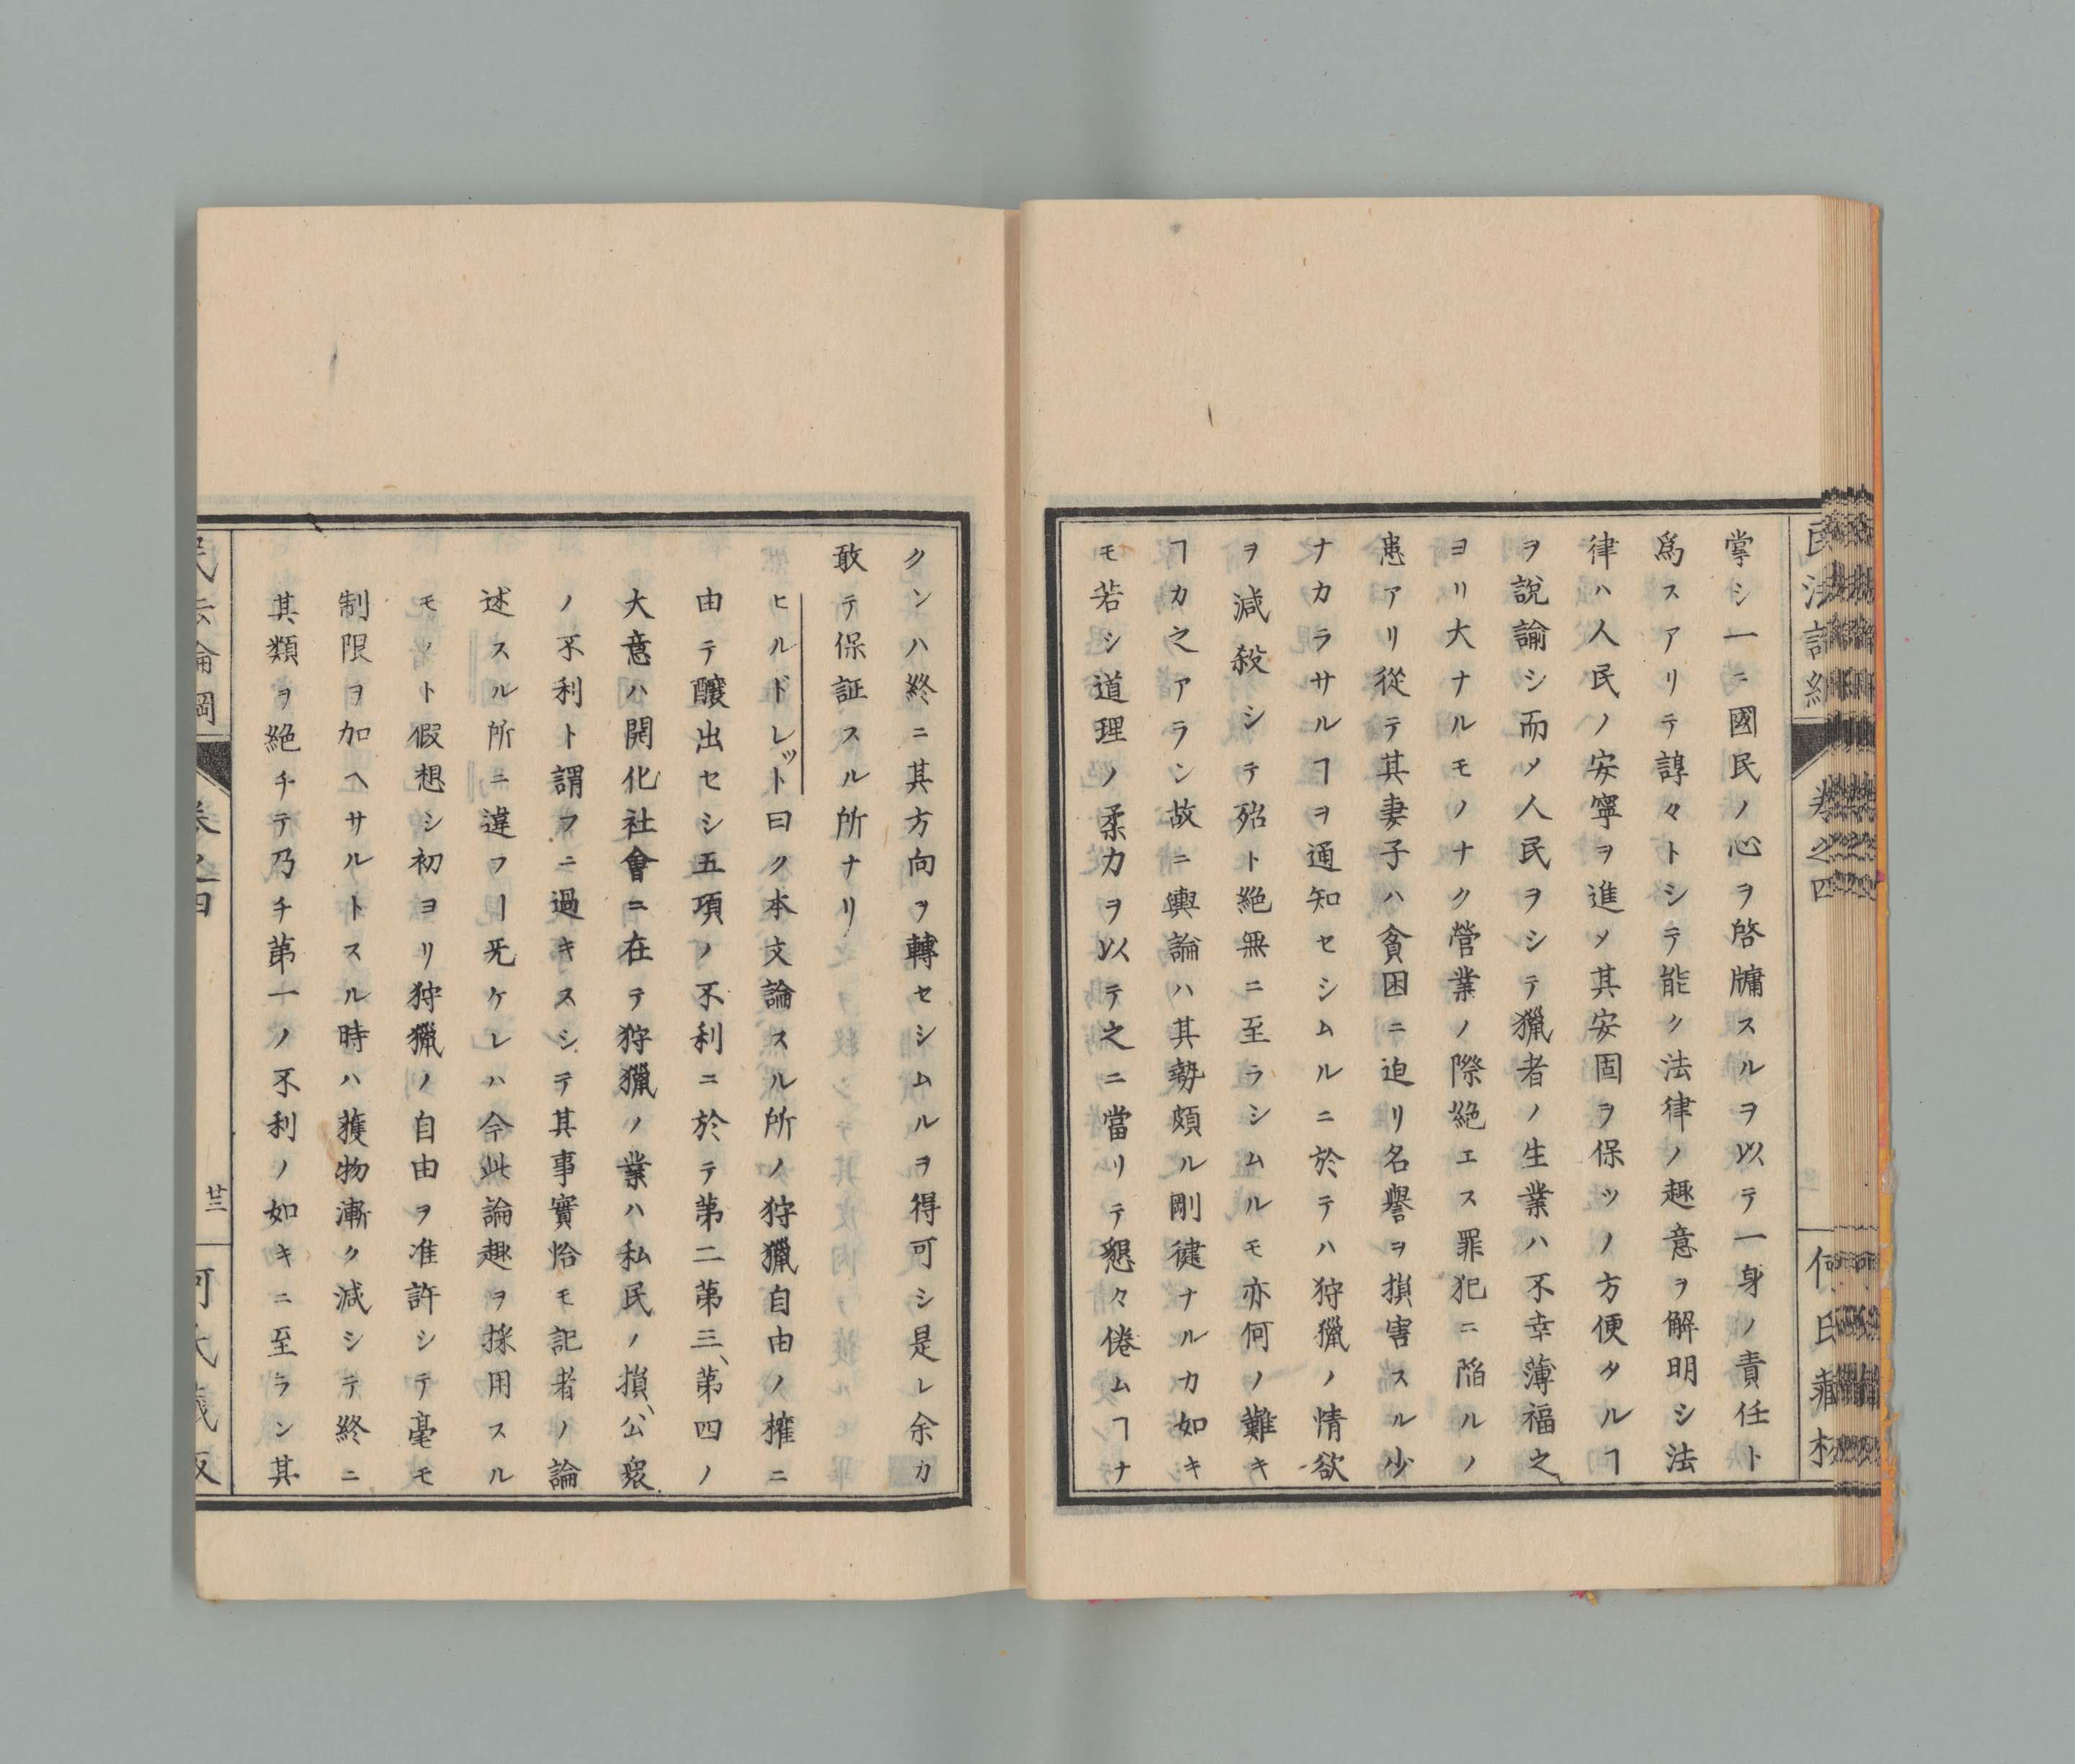 掌シ一ニ國民ノ心ヲ啓牗スルヲ以テ一身ノ責任ト
爲スアリテ諄々トシテ能ク法律ノ趣意ヲ解明シ法
律ハ人民ノ安寧ヲ進メ其安固ヲ保ツノ方便タルヿ
ヲ說諭シ而メ人民ヲシテ獵者ノ生業ハ不幸薄福之
ヨリ大ナルモノナク營業ノ際絶エス罪犯ニ陷ルノ
患アリ從テ其妻子ハ貧困ニ迫リ名譽ヲ損害スル少
ナカラサルヿヲ通知セシムルニ於テハ狩獵ノ情欲
ヲ減殺シテ殆ト絶無ニ至ラシムルモ亦何ノ難キ
ヿカ之アラン故ニ輿論ハ其勢頗ル剛健ナルカ如キ
モ若シ道理ノ柔力ヲ以テ之ニ當リテ懇々倦ムヿナ
クンハ終ニ其方向ヲ轉セシムルヲ得可シ是レ余カ
敢テ保証スル所ナリ
ヒルドレット曰ク本文論スル所ノ狩獵自由ノ權ニ
由テ釀出セシ五項ノ不利ニ於テ第二第三、第四ノ
大意ハ開化社會ニ在テ狩獵ノ業ハ私民ノ損、公衆
ノ不利ト謂フニ過キスシテ其事實恰モ記者ノ論
述スル所ニ違フ丨旡ケレハ今此論趣ヲ採用スル
モノト假想シ初ヨリ狩獵ノ自由ヲ准許シテ毫モ
制限ヲ加ヘサルトスル時ハ獲物漸ク減シテ終ニ
其類ヲ絶チテ乃チ第一ノ不利ノ如キニ至ラン其
民法論綱
卷之四
廿三
何氏藏版